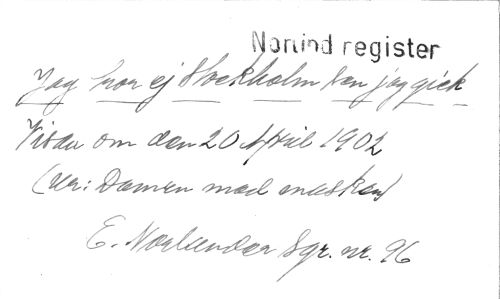 Norlind register
Jag tror ej Stockholm sen jag gick
Visan om den 20 April 1902
(ur: Damen med masken)
E. Norlander Sgr. nr. 96